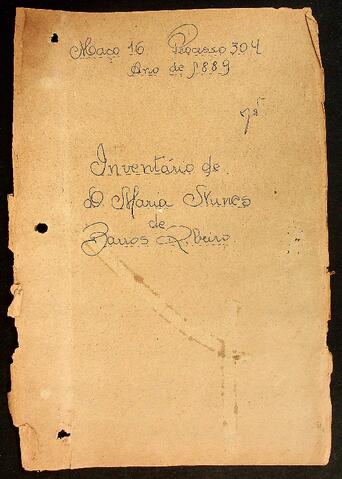 Maço 16 Processo 304
Ano de 1889
7ª
Inventário de
D Maria Nunes
de
Barros Ribeiro